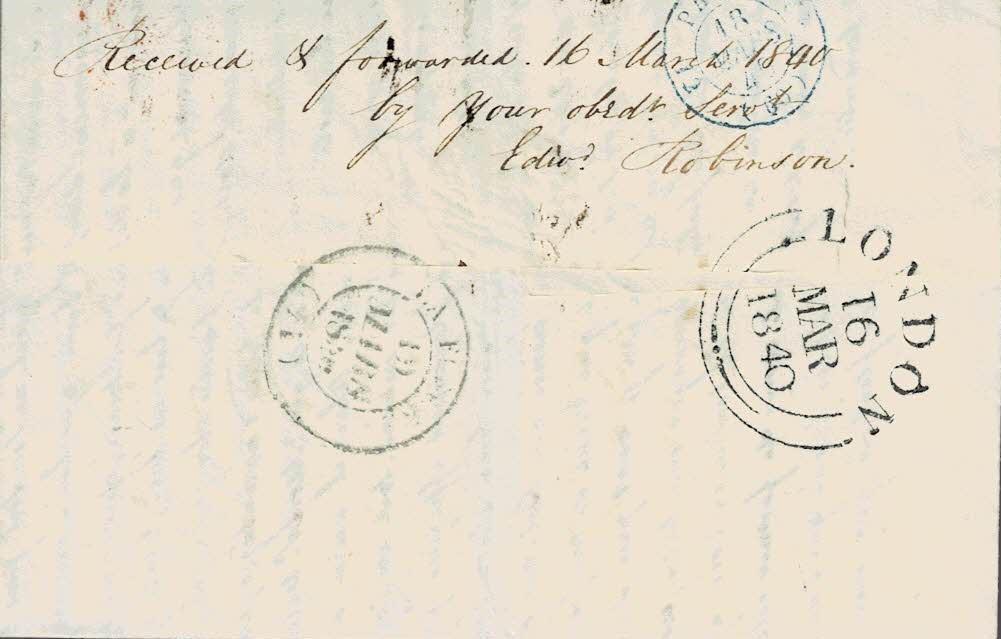 Received & forwarded. 16 March 1840
by Your obedt. Servt.
Edwd. Robinson.
18
LONDON
16
MAR
1840
19
MARS